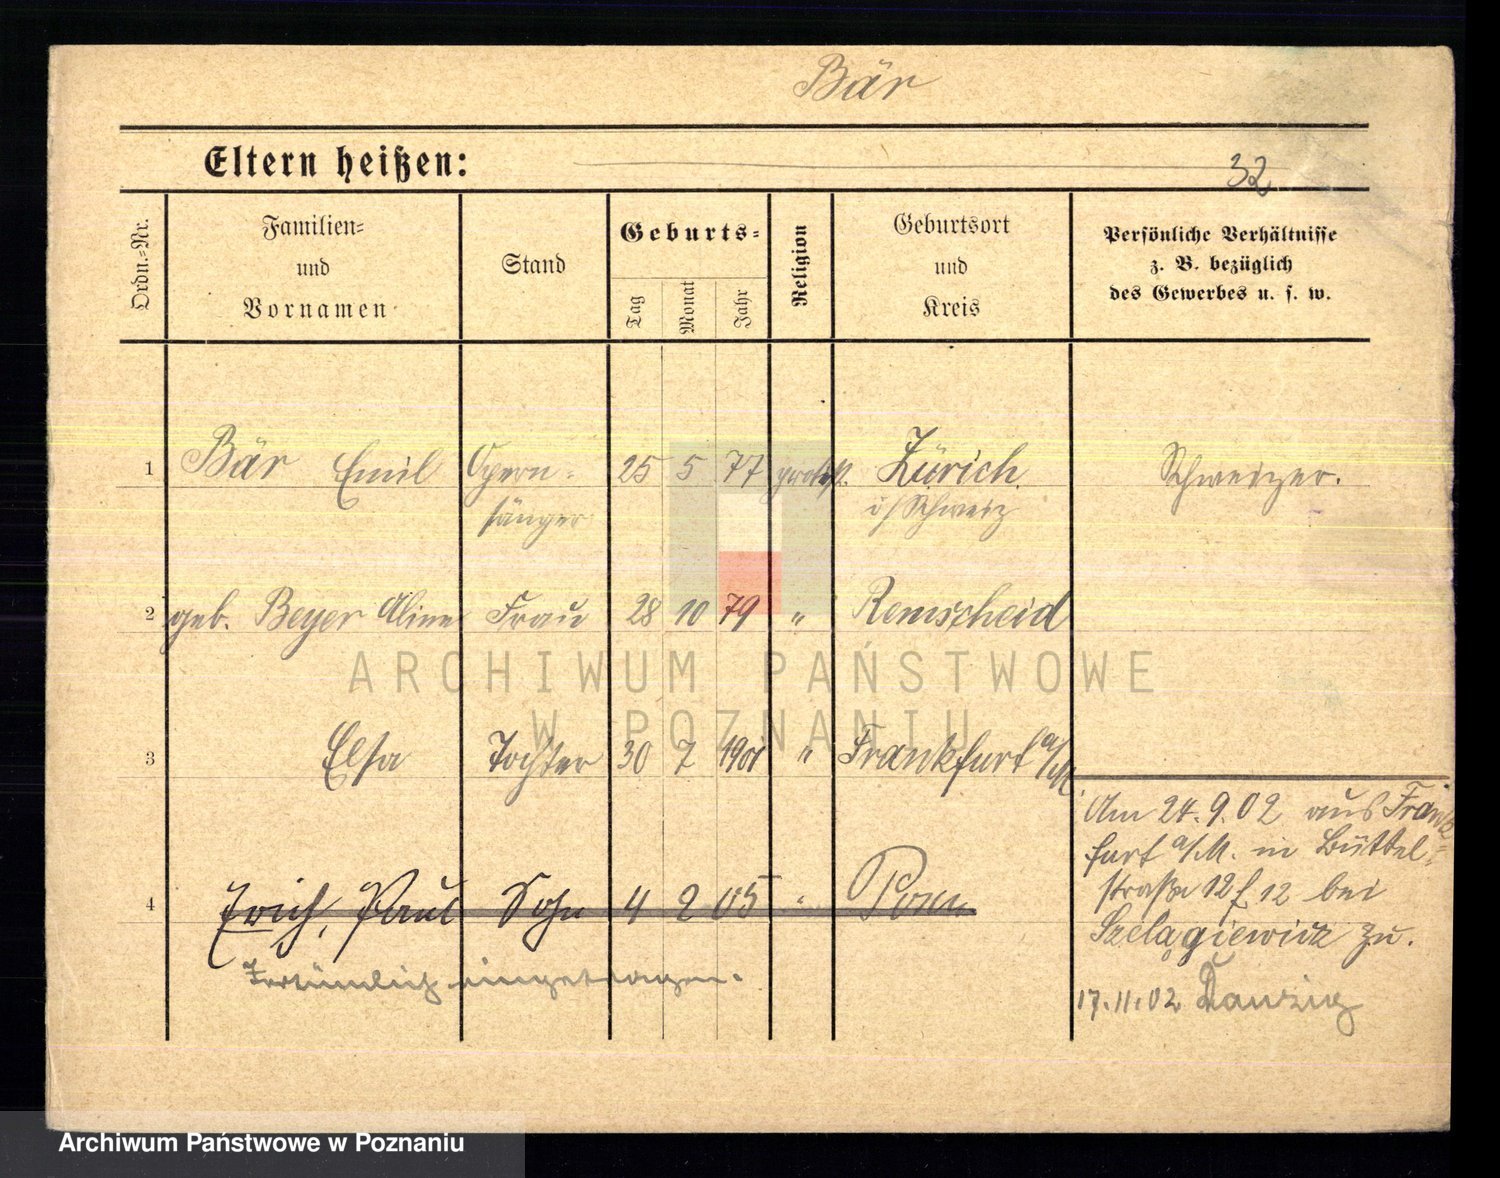 Bär
Eltern heißen:
32
Ordn.-Nr.
Familien-
und
Vornamen
Stand
Geburts-
Tag
Monat
Jahr
Religion
Geburtsort
und
Kreis
Persönliche Verhältnisse
z. B. bezüglich
des Gewerbes u. s. w.
1 Bär Emil Opern- 25 5 77 protest. Zürich Schweizer.
sänger i/Schweiz
2 geb. Beyer Aline Frau 28 10 79 " Remscheid
ARCHIWUM PAŃSTWOWE
W POZNANIU
3 Elsa Tochter 30 7 1901 " Frankfurt a/M
Am 24.9.02 aus Frank-
furt a/M. in Büttel-
straße 12 f. 12 bei
Szelągiewicz zu.
17.11.02 Danzig
4 Erich, Paul Sohn 4 2 05 " Posen
Irrtümlich eingetragen.
Archiwum Państwowe w Poznaniu